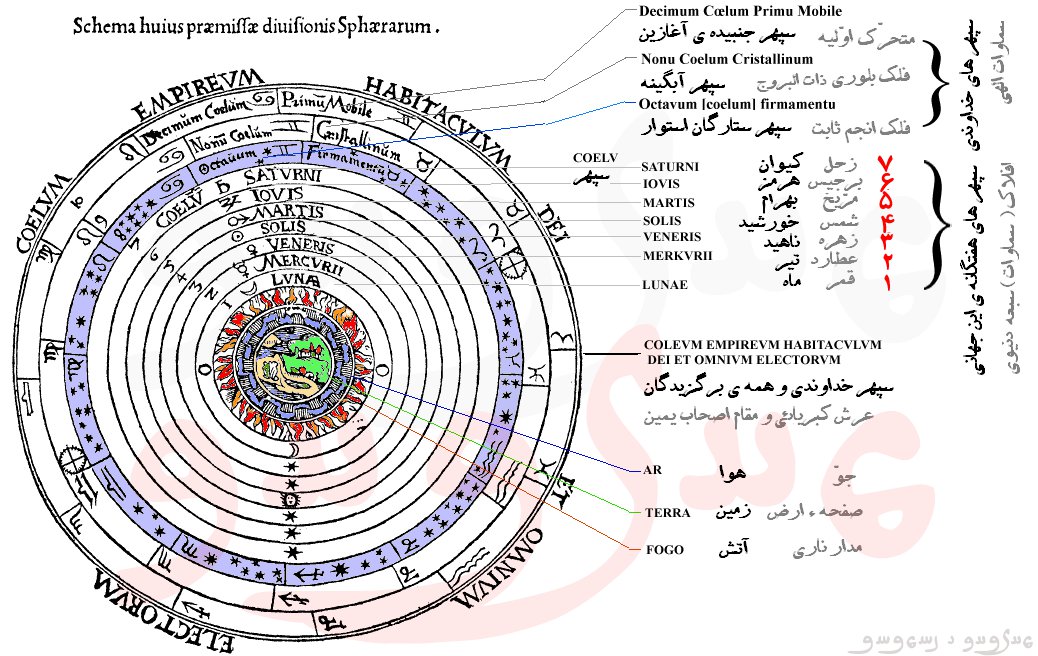 Schema huius præmissæ diuisionis Sphærarum .
COELVM EMPIREVM HABITACVLVM DEI ET OMNIVM ELECTORVM
Decimum Coelum Primũ Mobile
Nonũ Coelum Cristallinum
Octauum Firmamentũ
COELV SATVRNI
IOVIS
MARTIS
SOLIS
VENERIS
MERCVRII
LVNÆ
7
6
5
4
3
2
1
Decimum Cœlum Primu Mobile
سپهر جنبیده ی آغازین متحرّک اوّلیه
Nonu Coelum Cristallinum
سپهر آبگینه فلک بلوری ذات البروج
Octavum [coelum] firmamentu
سپهر ستارگان استوار فلک انجم ثابت
سپهر های خداوندی
سماوات الهی
COELV
سپهر
SATURNI کیوان زحل ۷
IOVIS هرمز برجیس ۶
MARTIS بهرام مرّیخ ۵
SOLIS خورشید شمس ۴
VENERIS ناهید زهره ۳
MERKVRII تیر عطارد ۲
LUNAE ماه قمر ۱
سپهر های هفتگانه ی این جهانی
افلاک ( سماوات ) سبعه دنیوی
COLEVM EMPIREVM HABITACVLVM
DEI ET OMNIVM ELECTORVM
سپهر خداوندی و همه ی برگزیدگان
عرش کبریائی و مقام اصحاب یمین
AR هوا جوّ
TERRA زمین صفحه ء ارض
FOGO آتش مدار ناری